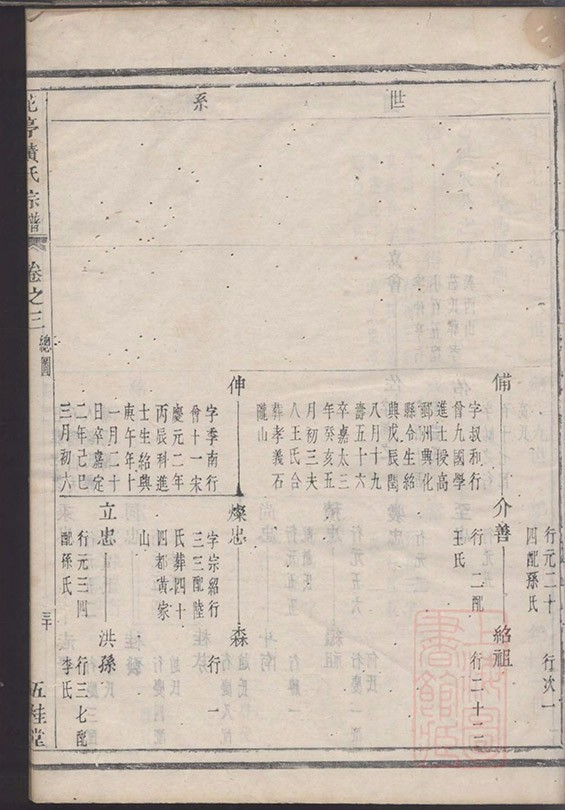 世系
行元二十
四配孫氏
行次一
備
字叔和行
曾九國學
進士授高
郵州興化
縣令生紹
興戊辰閏
八月十九
壽五十六
卒嘉太三
年癸亥五
月初三夫
人王氏合
葬孝義石
龍山
介善
行二配
王氏
紹祖
行二十二
伸
字季南行
曾十一宋
慶元二年
丙辰科進
士生紹興
庚午年十
一月二十
日卒嘉定
二年己巳
三月初六
燦忠
字宗紹行
三三配陸
氏葬四十
四都黃家
山
森
行一
立忠
行元三四
配孫氏
洪孫
行三七配
李氏
花亭黃氏宗譜
卷之三
總圖
三十
五桂堂
上海圖書館藏